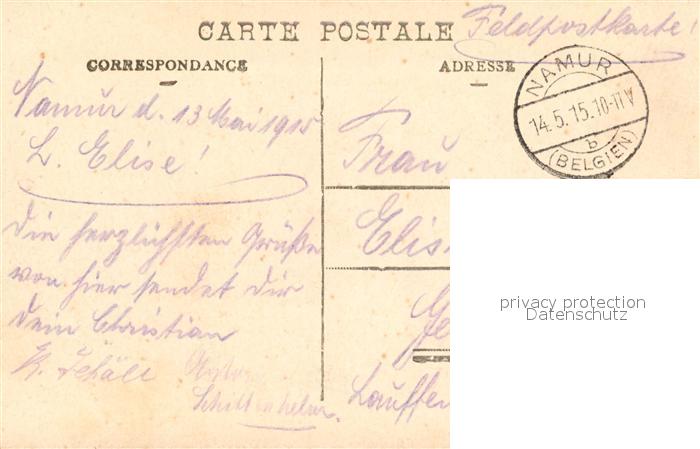 CARTE POSTALE
Feldpostkarte!
CORRESPONDANCE
ADRESSE
NAMUR
14.5.15.10-11V
b
(BELGIEN)
Namur d. 13 Mai 1915
L. Elise!
Die herzlichsten Grüße
von hier sendet dir
dein Christian
Schittenhelm.
Frau
Elis
Ge
Lauffen
privacy protection
Datenschutz